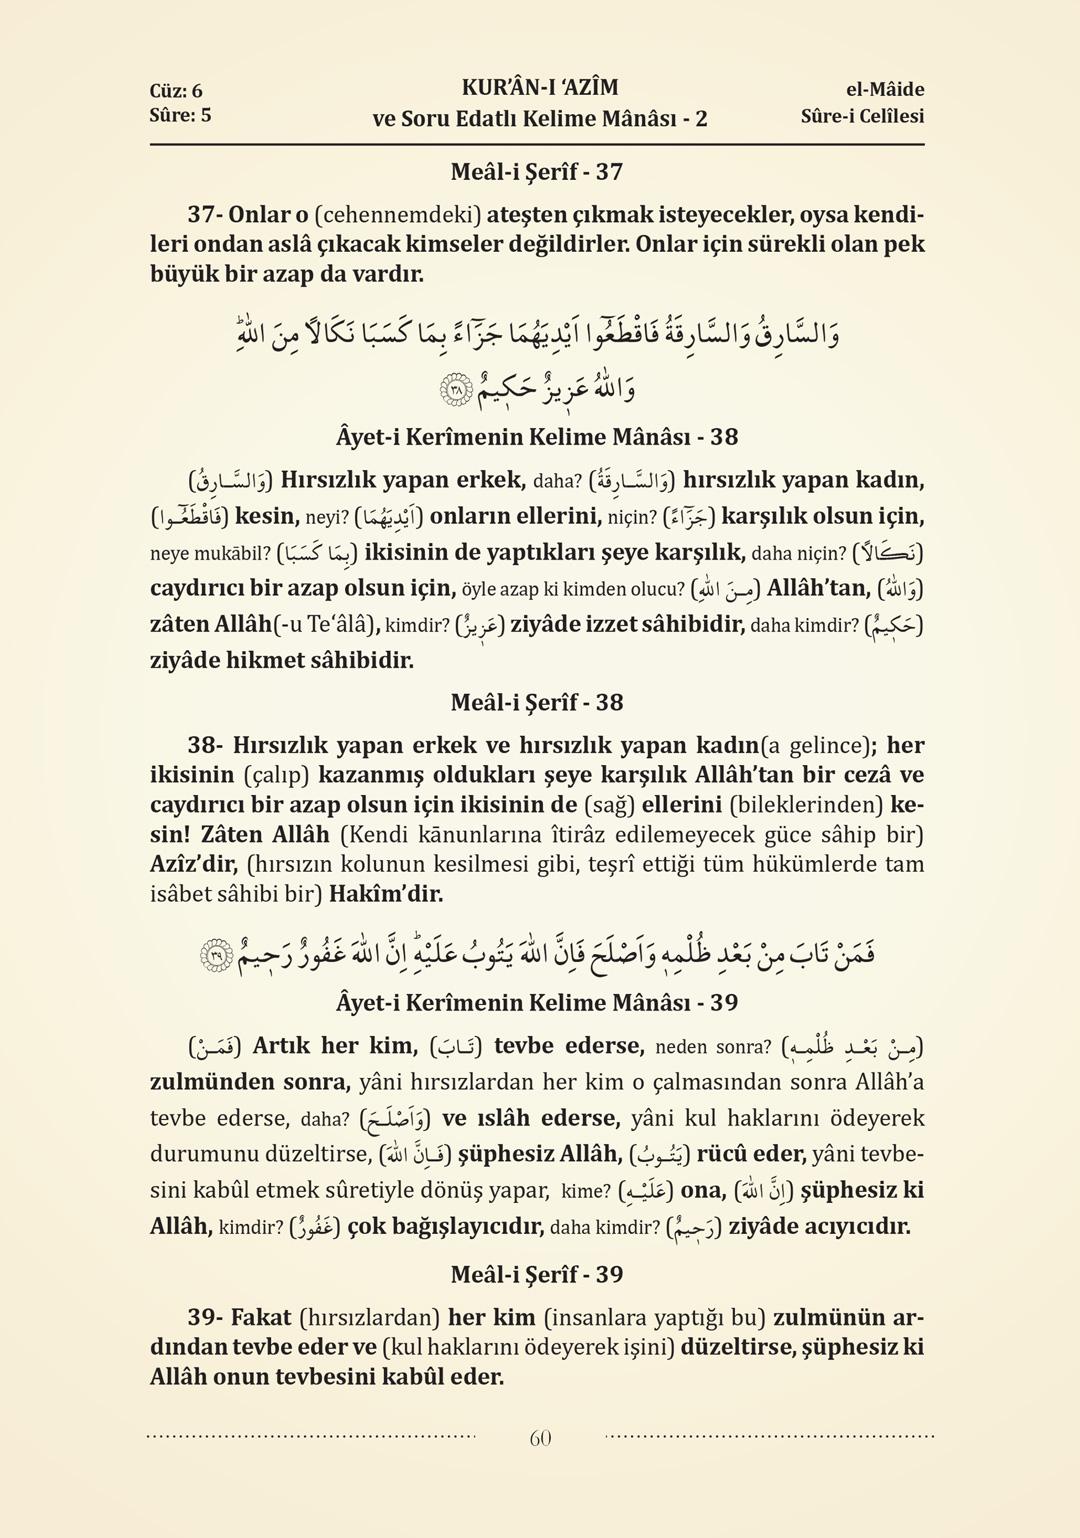 Cüz: 6
Sûre: 5
KUR’ÂN-I ‘AZÎM
ve Soru Edatlı Kelime Mânâsı - 2
el-Mâide
Sûre-i Celîlesi
Meâl-i Şerîf - 37
37- Onlar o (cehennemdeki) ateşten çıkmak isteyecekler, oysa kendi-
leri ondan aslâ çıkacak kimseler değildirler. Onlar için sürekli olan pek
büyük bir azap da vardır.
وَالسَّارِقُ وَالسَّارِقَةُ فَاقْطَعُٓوا اَيْدِيَهُمَا جَزَٓاءً بِمَا كَسَبَا نَكَالًا مِنَ اللّٰهِۜ
وَاللّٰهُ عَزِيزٌ حَكِيمٌ ﴿٣٨﴾
Âyet-i Kerîmenin Kelime Mânâsı - 38
(وَالسَّارِقُ) Hırsızlık yapan erkek, daha? (وَالسَّارِقَةُ) hırsızlık yapan kadın,
(فَاقْطَعُٓوا) kesin, neyi? (اَيْدِيَهُمَا) onların ellerini, niçin? (جَزَٓاءً) karşılık olsun için,
neye mukābil? (بِمَا كَسَبَا) ikisinin de yaptıkları şeye karşılık, daha niçin? (نَكَالًا)
caydırıcı bir azap olsun için, öyle azap ki kimden olucu? (مِنَ اللّٰهِ) Allâh’tan, (وَاللّٰهُ)
zâten Allâh(-u Te‘âlâ), kimdir? (عَزِيزٌ) ziyâde izzet sâhibidir, daha kimdir? (حَكِيمٌ)
ziyâde hikmet sâhibidir.
Meâl-i Şerîf - 38
38- Hırsızlık yapan erkek ve hırsızlık yapan kadın(a gelince); her
ikisinin (çalıp) kazanmış oldukları şeye karşılık Allâh’tan bir cezâ ve
caydırıcı bir azap olsun için ikisinin de (sağ) ellerini (bileklerinden) ke-
sin! Zâten Allâh (Kendi kānunlarına îtirâz edilemeyecek güce sâhip bir)
Azîz’dir, (hırsızın kolunun kesilmesi gibi, teşrî ettiği tüm hükümlerde tam
isâbet sâhibi bir) Hakîm’dir.
فَمَنْ تَابَ مِنْ بَعْدِ ظُلْمِهِ وَاَصْلَحَ فَاِنَّ اللّٰهَ يَتُوبُ عَلَيْهِۜ اِنَّ اللّٰهَ غَفُورٌ رَحِيمٌ ﴿٣٩﴾
Âyet-i Kerîmenin Kelime Mânâsı - 39
(فَمَنْ) Artık her kim, (تَابَ) tevbe ederse, neden sonra? (مِنْ بَعْدِ ظُلْمِهِ)
zulmünden sonra, yâni hırsızlardan her kim o çalmasından sonra Allâh’a
tevbe ederse, daha? (وَاَصْلَحَ) ve ıslâh ederse, yâni kul haklarını ödeyerek
durumunu düzeltirse, (فَاِنَّ اللّٰهَ) şüphesiz Allâh, (يَتُوبُ) rücû eder, yâni tevbe-
sini kabûl etmek sûretiyle dönüş yapar, kime? (عَلَيْهِ) ona, (اِنَّ اللّٰهَ) şüphesiz ki
Allâh, kimdir? (غَفُورٌ) çok bağışlayıcıdır, daha kimdir? (رَحِيمٌ) ziyâde acıyıcıdır.
Meâl-i Şerîf - 39
39- Fakat (hırsızlardan) her kim (insanlara yaptığı bu) zulmünün ar-
dından tevbe eder ve (kul haklarını ödeyerek işini) düzeltirse, şüphesiz ki
Allâh onun tevbesini kabûl eder.
60